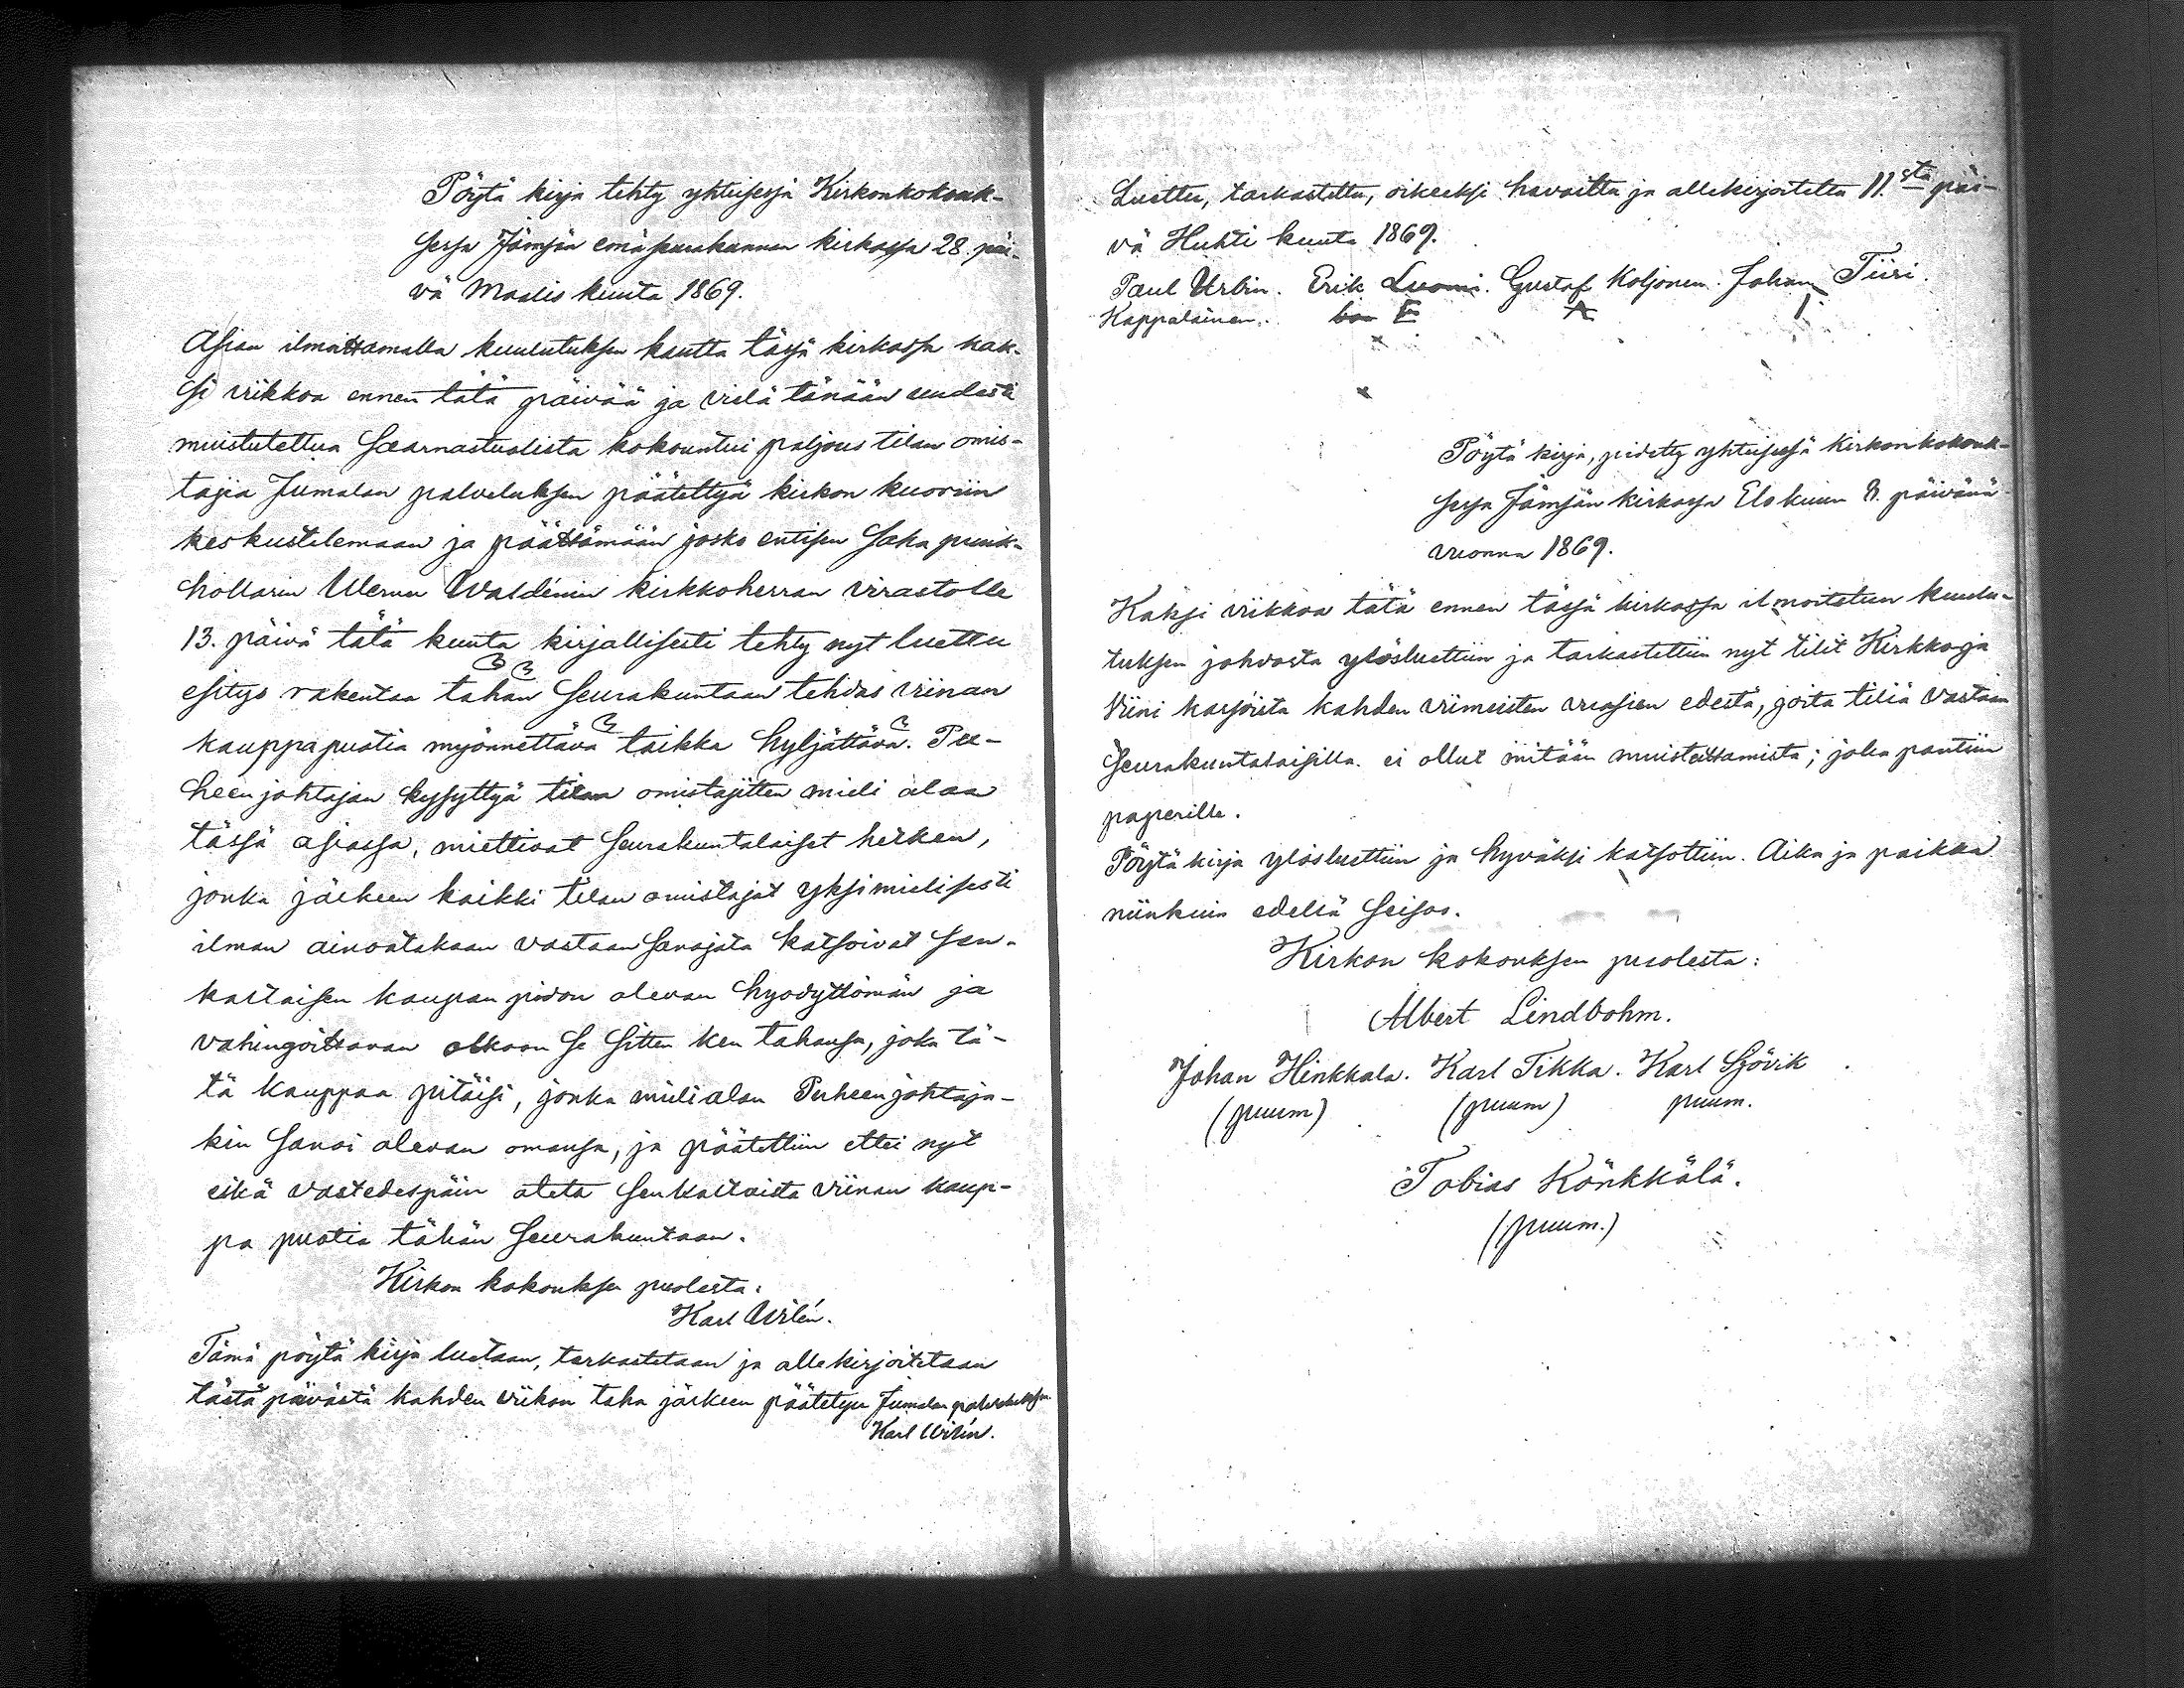 Pöytä kirja tehty yhteisessä Kirkonkokouk-
sessa Jämsän emäseurakunnan kirkossa 28. päi-
vä Maalis kuuta 1869.
Asian ilmoittamalla kuulutuksen kautta tässä kirkossa kak-
si viikkoa ennen tätä päivää ja vielä tänään uudesti
muistutettua Saarnastuolista kokountui paljous tilan omis-
tajia Jumalan palveluksen päätettyä kirkon kuoriin
keskustelemaan ja päättämään josko entisen Saka puuk-
hollarin Werner Waldénin kirkkoherran virastolle
13. päivä tätä kuuta kirjallisesti tehty nyt luettu
esitys rakentaa tähän Seurakuntaan tehdas viinan
kauppapuotia myönnettävä taikka hyljättävä. Pu-
heenjohtajan kysyttyä tilan omistajitten mieli alaa
tässä asiassa, miettivät Seurakuntalaiset hetken,
jonka jälkeen kaikki tilan omistajat yksimielisesti
ilman ainoatakaan vastaan Sanojata katsoivat Sen-
kaltaisen kaupan pidon olevan hyödyttömän ja
vahingoittavan olkoon Se Sitten ken tahansa, joka tä-
tä kauppaa pitäisi, jonka mielialan Puheenjohtaja-
kin Sanoi olevan omansa, ja päätettiin ettei nyt
eikä vastedespäin oteta Senkaltaista viinan kaup-
pa puotia tähän Seurakuntaan.
Kirkon kokouksen puolesta:
Karl Wilén.
Tämä pöytä kirja luetaan, tarkastetaan ja allekirjoitetaan
tästä päivästä kahden viikon taka jälkeen päätetyn Jumalan palveluksen
Karl Wilén.
Luettu, tarkastettu, oikeeksi havaittu ja allekirjoitettu 11.sta päi-
vä Huhti kuuta 1869.
Paul Urbin. Erik Luomi. Gustaf Koljonen. Johan Tiiri.
Kappalainen.
Pöytä kirja, pidetty yhteisessä Kirkonkokouk-
sessa Jämsän kirkossa Elo kuun 8. päivänä
vuonna 1869.
Kaksi viikkoa tätä ennen tässä kirkossa ilmoitetun kuulu-
tuksen johdosta ylösluettiin ja tarkastettiin nyt tilit Kirkko ja
Viini kassoista kahden viimeisten vuosien edestä, joita tiliä vastaan
Seurakuntalaisilla ei ollut mitään muistuttamista; joka pantiin
paperille.
Pöytä kirja ylösluettiin ja hyväksi katsottiin. Aika ja paikka
niinkuin edellä Seisoo.
Kirkon kokouksen puolesta:
Albert Lindbohm.
Johan Hinkkala. Karl Tikka. Karl Sjövik
(puum) (puum) puum.
Tobias Könkkälä.
(puum.)